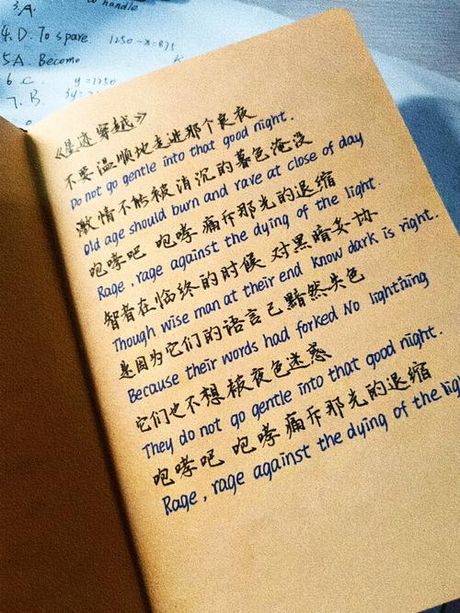 3.A. to handle
4.D. To spare. 1250-x=875
5A. Become
6 C. y=1250
7. B.
《星迹穿越》
不要温顺地走进那个良夜
Do not go gentle into that good night.
激情不能被消沉的暮色淹没
Old age should burn and rave at close of day
咆哮吧 咆哮 痛斥那光的退缩
Rage, rage against the dying of the light.
智者在临终的时候 对黑暗妥协
Though wise man at their end know dark is right.
是因为它们的语言已黯然失色
Because their words had forked No lightning
它们也不想被夜色迷惑
They do not go gentle into that good night.
咆哮吧 咆哮 痛斥那光的退缩
Rage, rage against the dying of the ligh